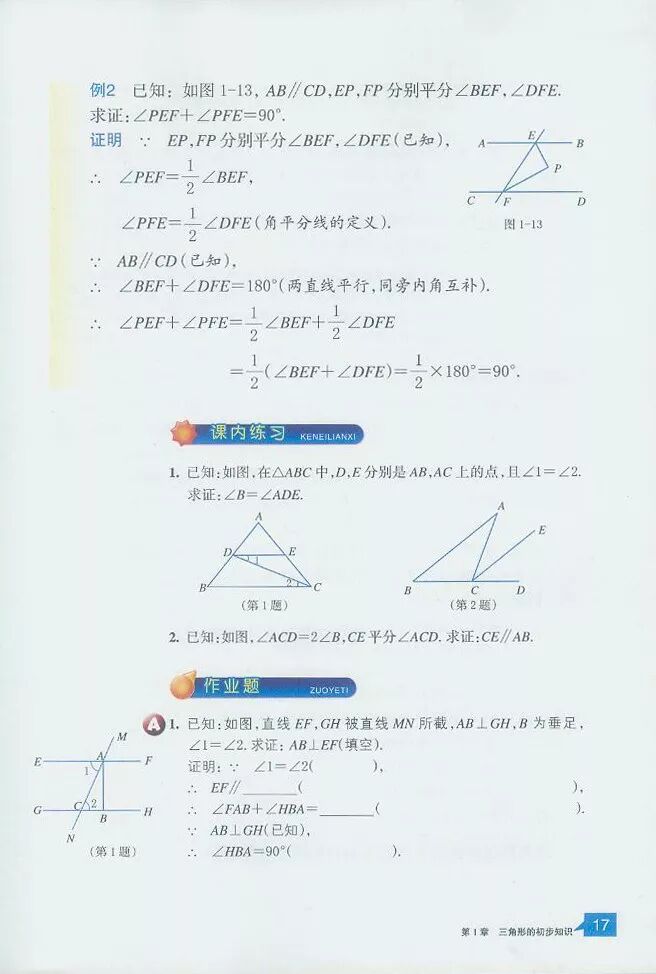 例2 已知：如图1-13，AB∥CD，EP，FP分别平分∠BEF，∠DFE.
求证：∠PEF＋∠PFE＝90°.
证明 ∵ EP，FP分别平分∠BEF，∠DFE(已知)，
∴ ∠PEF＝1/2∠BEF，
∠PFE＝1/2∠DFE(角平分线的定义).
A E B
P
C F D
图1-13
∵ AB∥CD(已知)，
∴ ∠BEF＋∠DFE＝180°(两直线平行，同旁内角互补).
∴ ∠PEF＋∠PFE＝1/2∠BEF＋1/2∠DFE
＝1/2(∠BEF＋∠DFE)＝1/2×180°＝90°.
课内练习 KENEILIANXI
1. 已知：如图，在△ABC中，D，E分别是AB，AC上的点，且∠1＝∠2.
求证：∠B＝∠ADE.
A
D 1 E
B 2 C
(第1题)
A
E
B C D
(第2题)
2. 已知：如图，∠ACD＝2∠B，CE平分∠ACD. 求证：CE∥AB.
作业题 ZUOYETI
A 1. 已知：如图，直线EF，GH被直线MN所截，AB⊥GH，B为垂足，
∠1＝∠2. 求证：AB⊥EF(填空).
证明：∵ ∠1＝∠2( )，
∴ EF∥______( )，
∴ ∠FAB＋∠HBA＝______( ).
∵ AB⊥GH(已知)，
∴ ∠HBA＝90°( ).
M
E A F
1
G C 2 B H
N
(第1题)
第1章 三角形的初步知识 17